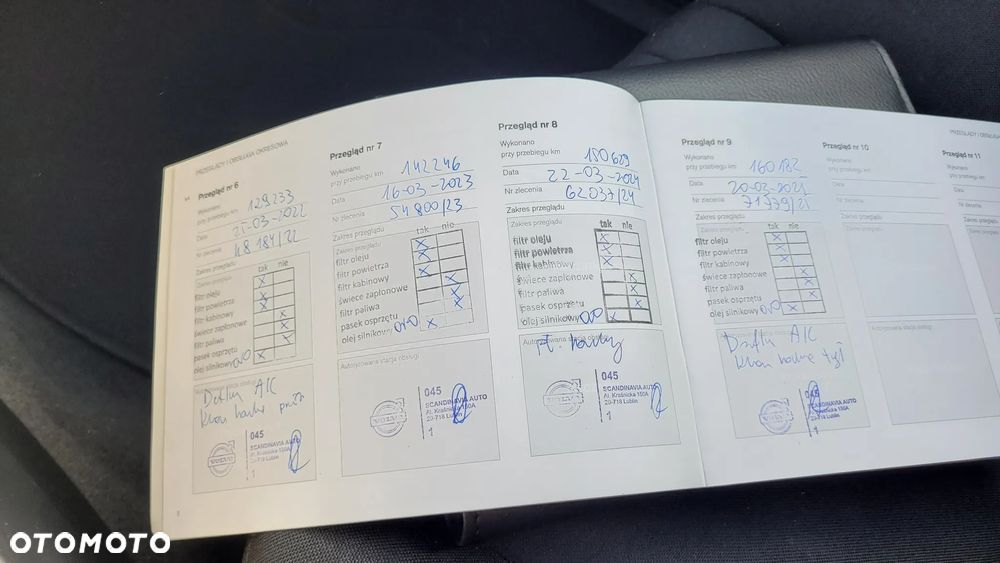 PRZEGLĄDY I OBSŁUGA OKRESOWA
Przegląd nr 6
Wykonano
przy przebiegu km 129233
Data 21-03-2022
Nr zlecenia 48184/22
Zakres przeglądu
tak nie
filtr oleju
filtr powietrza
filtr kabinowy
świece zapłonowe
filtr paliwa
pasek osprzętu
olej silnikowy 0W0
A/C
045
SCANDINAVIA AUTO
Al. Kraśnicka 150A
20-718 Lublin
1
VOLVO
Przegląd nr 7
Wykonano
przy przebiegu km 142246
Data 16-03-2023
Nr zlecenia 54800/23
Zakres przeglądu
tak nie
filtr oleju
filtr powietrza
filtr kabinowy
świece zapłonowe
filtr paliwa
pasek osprzętu
olej silnikowy 0W0
Autoryzowana stacja obsługi
045
SCANDINAVIA AUTO
Al. Kraśnicka 150A
20-718 Lublin
1
VOLVO
Przegląd nr 8
Wykonano
przy przebiegu km 150629
Data 22-03-2024
Nr zlecenia 62037/24
Zakres przeglądu
tak nie
filtr oleju
filtr powietrza
filtr kabinowy
świece zapłonowe
filtr paliwa
pasek osprzętu
olej silnikowy 0W0
Autoryzowana stacja obsługi
045
SCANDINAVIA AUTO
Al. Kraśnicka 150A
20-718 Lublin
1
VOLVO
Przegląd nr 9
Wykonano
przy przebiegu km 160182
Data 20-03-2025
Nr zlecenia
Zakres przeglądu
tak nie
filtr oleju
filtr powietrza
filtr kabinowy
świece zapłonowe
filtr paliwa
pasek osprzętu
olej silnikowy 0W0
Autoryzowana stacja obsługi
A/C
tył
045
SCANDINAVIA AUTO
Al. Kraśnicka 150A
20-718 Lublin
1
VOLVO
Przegląd nr 10
Wykonano
przy przebiegu km
Data
Nr zlecenia
Zakres przeglądu
Autoryzowana stacja obsługi
Przegląd nr 11
Wykonano
przy przebiegu
Data
Nr zlecenia
Zakres
OTOMOTO